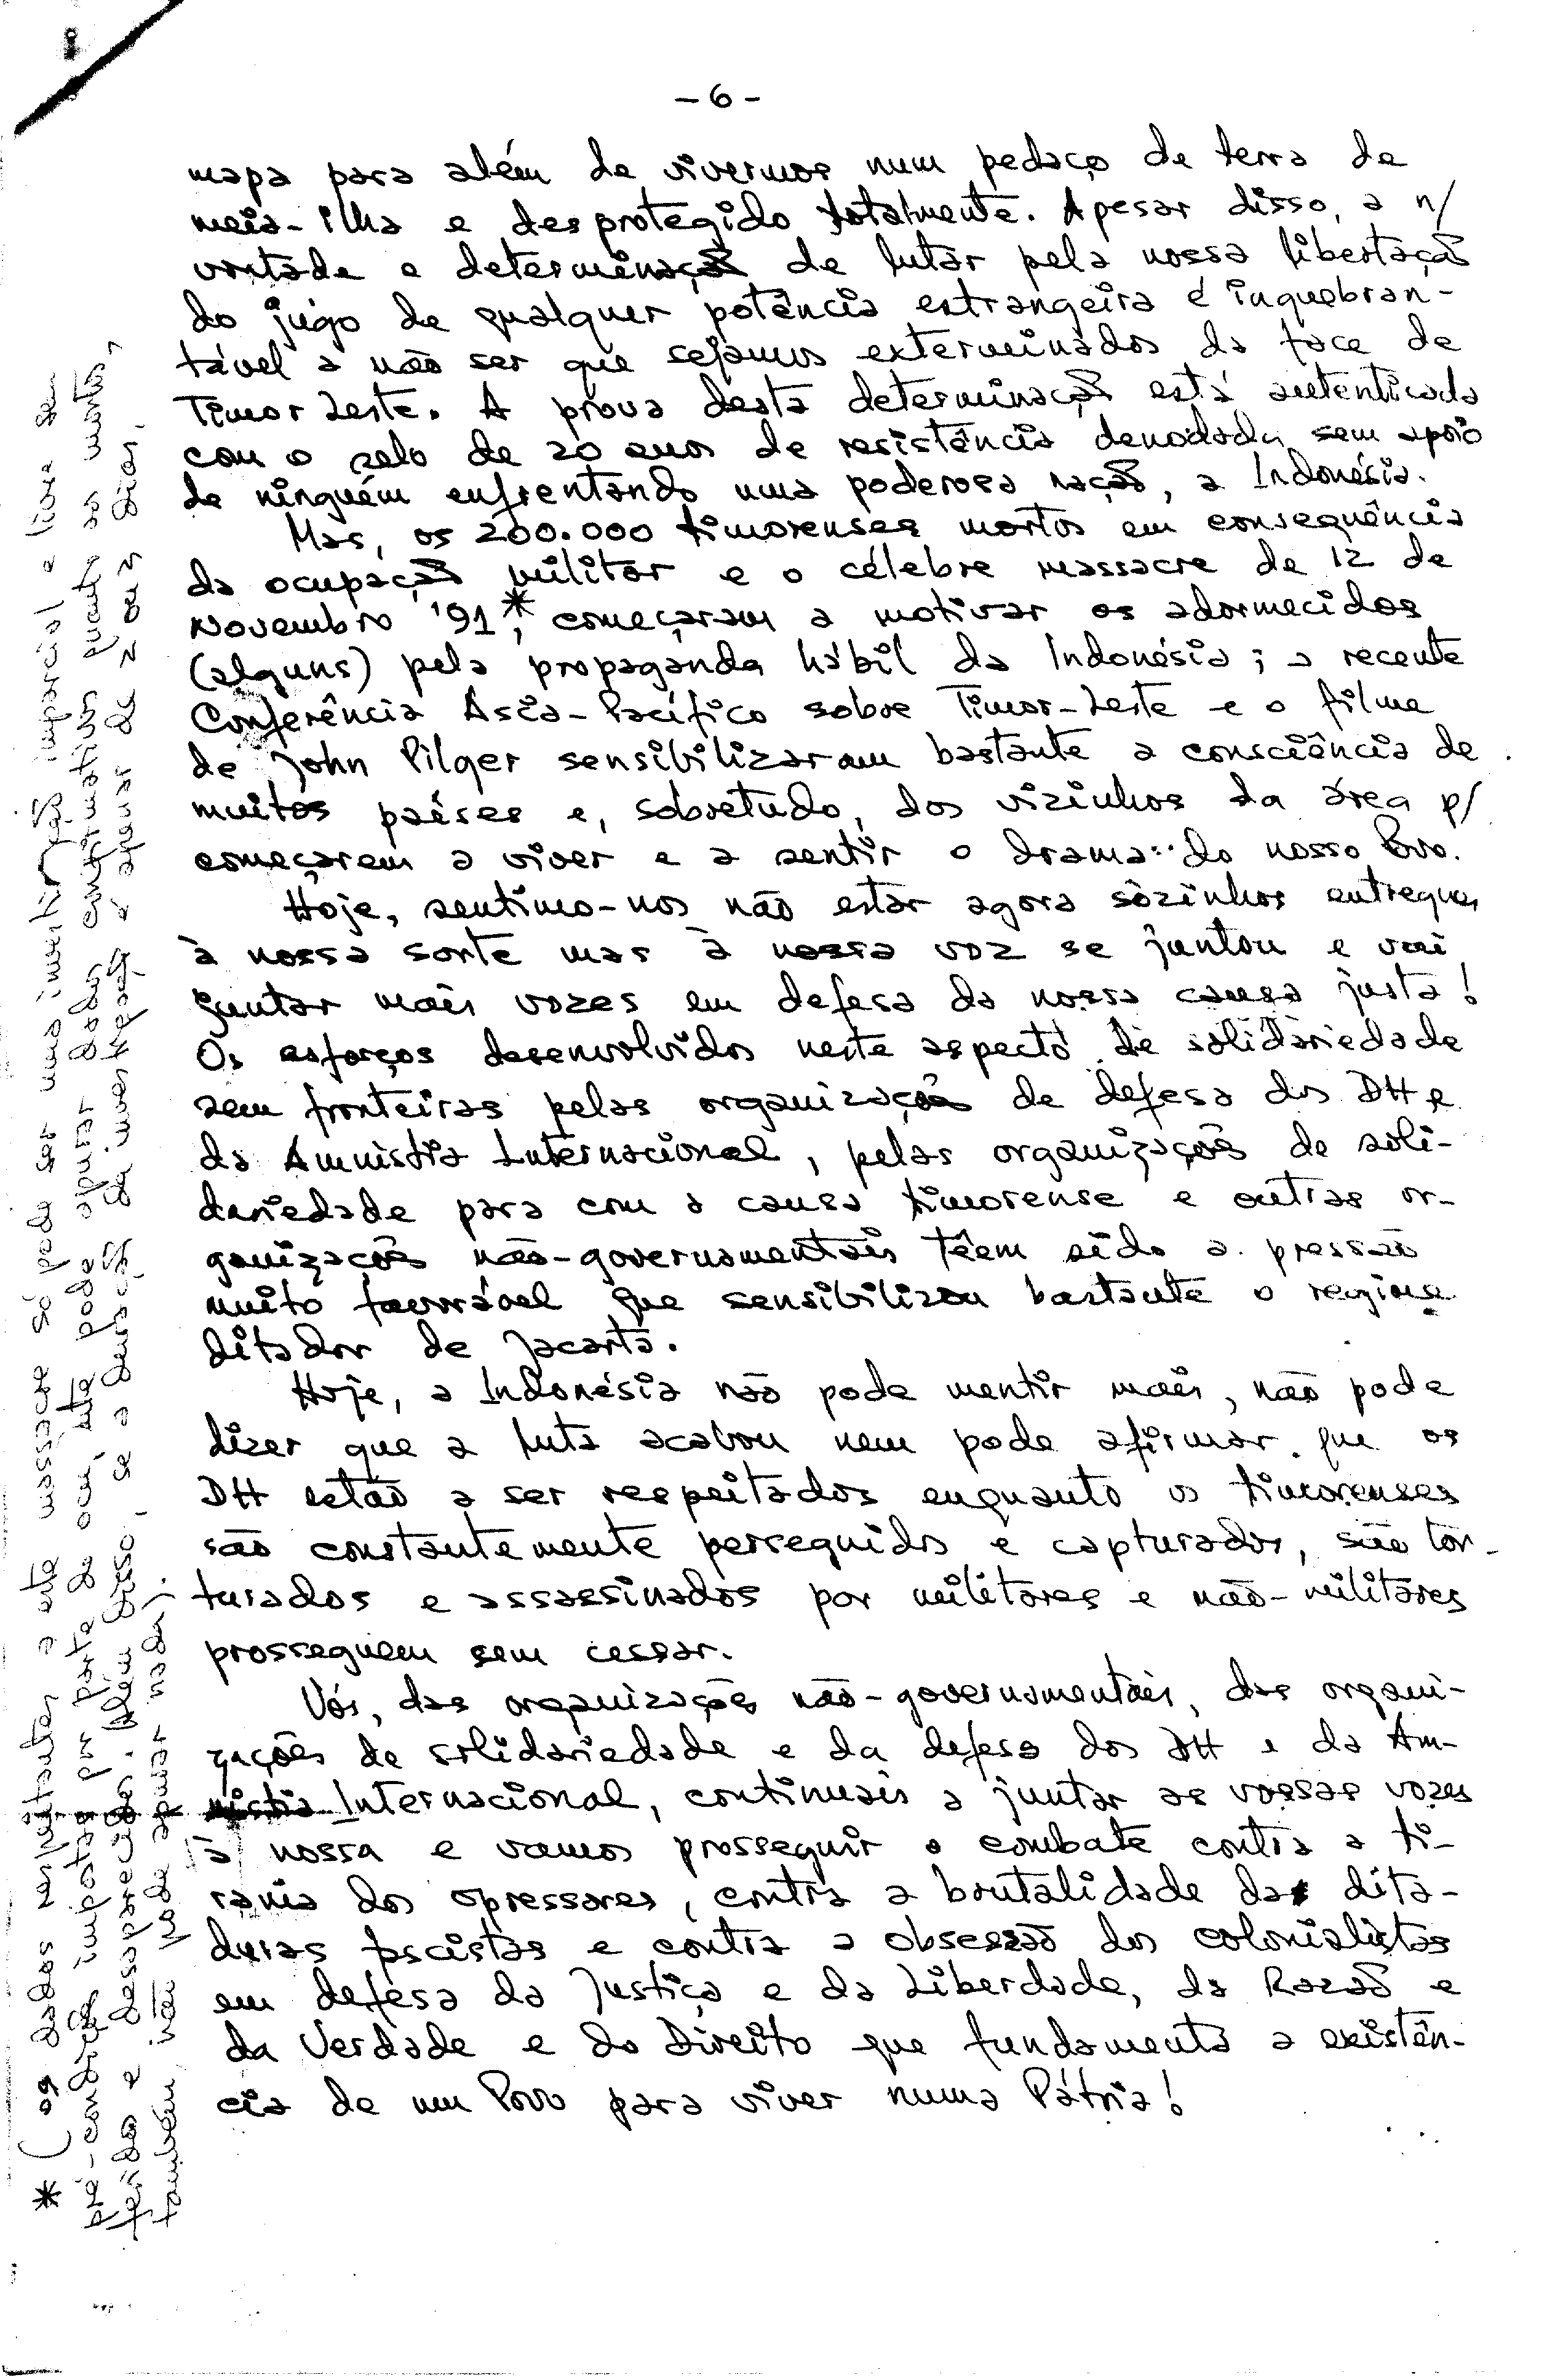 - 6 -
mapa para além de vivermos num pedaço de terra de
meia-ilha e desprotegido totalmente. Apesar disso, a n/
vontade e determinação de lutar pela nossa libertação
do jugo de qualquer potência estrangeira é inquebran-
tável a não ser que sejamos exterminados da face de
Timor Leste. A prova desta determinação está autenticada
com o selo de 20 anos de resistência denodada sem apoio
de ninguém enfrentando uma poderosa nação, a Indonésia.
Mas, os 200.000 timorenses mortos em consequência
da ocupação militar e o célebre massacre de 12 de
Novembro '91*, começaram a motivar os adormecidos
(alguns) pela propaganda hábil da Indonésia; a recente
Conferência Ásia-Pacífico sobre Timor-Leste e o filme
de John Pilger sensibilizaram bastante a consciência de
muitos países e, sobretudo, dos vizinhos da área p/
começarem a viver e a sentir o drama do nosso Povo.
Hoje, sentimo-nos não estar agora sòzinhos entregues
à nossa sorte mas à nossa voz se juntou e vai
juntar mais vozes em defesa da nossa causa justa!
Os esforços desenvolvidos neste aspecto de solidariedade
sem fronteiras pelas organizações de defesa dos DH e
da Amnistia Internacional, pelas organizações de soli-
dariedade para com a causa timorense e outras or-
ganizações não-governamentais têem sido a pressão
muito favorável que sensibilizou bastante o regime
ditador de Jacarta.
Hoje, a Indonésia não pode mentir mais, não pode
dizer que a luta acabou nem pode afirmar que os
DH estão a ser respeitados enquanto os timorenses
são constantemente perseguidos e capturados, são tor-
turados e assassinados por militares e não-militares
prosseguem sem cessar.
Vós, das organizações não-governamentais, das organi-
zações de solidariedade e da defesa dos DH e da Am-
nistia Internacional, continuais a juntar as vossas vozes
à nossa e vamos prosseguir o combate contra a ti-
rania dos opressores, contra a brutalidade das dita-
duras fscistas e contra a obsessão dos colonialistas
em defesa da Justiça e da Liberdade, da Razão e
da Verdade e do Direito que fundamenta a existên-
cia de um Povo para viver numa Pátria!
* (os dados resultantes a este massacre só pode ser uma imparcial e livre de
pré-condições impostas por parte da ocup. pode apurar dados quanto aos mortos,
feridos e desaparecidos. Além disso, se a se 2 ou 3 dias,
também não pode apurar nada).